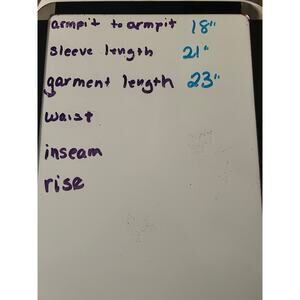 armpit to armpit 18"
sleeve length 21"
garment length 23"
waist
inseam
rise